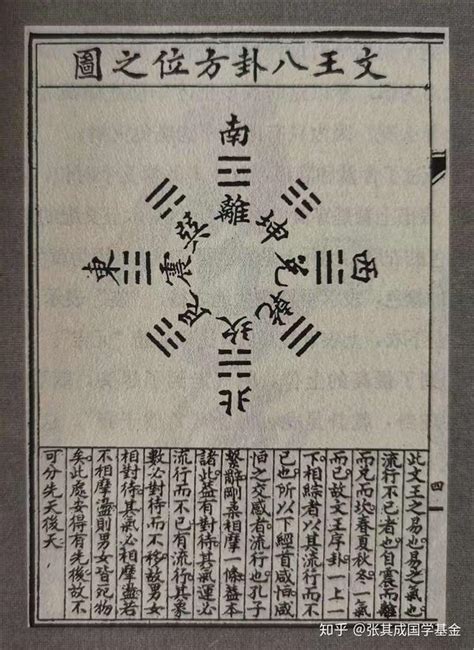 文王八卦方位之圖
南
離
巽
坤
東
震
兌
西
艮
乾
坎
北
四一
此文王之易也易之氣也
流行不已者也自震而離
而兌而坎春夏秋冬一氣
而已故文王序卦一上一
下相綜者以其流行而不
已也所以下經首咸恒咸
恒之交感者流行也孔子
繫辭剛柔相摩一條蓋本
諸此蓋有對待其氣運必
流行而不已有流行其象
數必對待而不移故男女
相對待其氣必相摩盪若
不相摩盪則男女皆死物
矣此處安得有先後故不
可分先天後天
知乎 @张其成国学基金